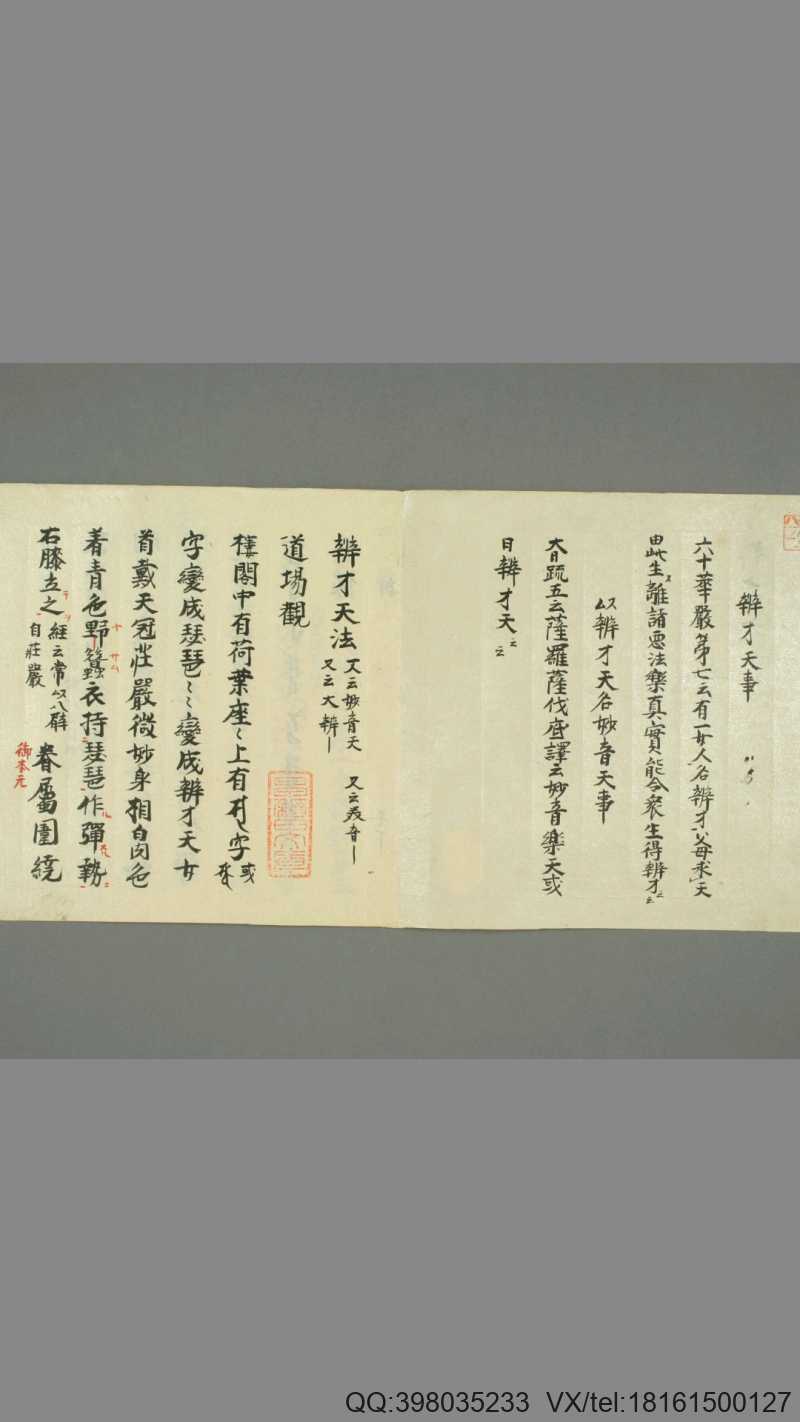 辨才天事
六十華嚴第七云有一女人名辨才父母求天
此生離諸惡法樂真實能令衆生得辨才云云
以辨才天名妙音天事
大日疏五云薩羅薩伐底譯云妙音樂天或
曰辨才天云云
辨才天法 又云妙音天 又云美音｜
又云大辨｜
道場觀
樓閣中有荷葉座〻上有字或
字變成琵琶〻〻變成辨才天女
首戴天冠莊嚴微妙身相白肉色
着青色野蠶衣持琵琶作彈勢
右膝立之 經云常以八臂
自莊嚴 眷屬圍繞
御本元
QQ:398035233 VX/tel:18161500127